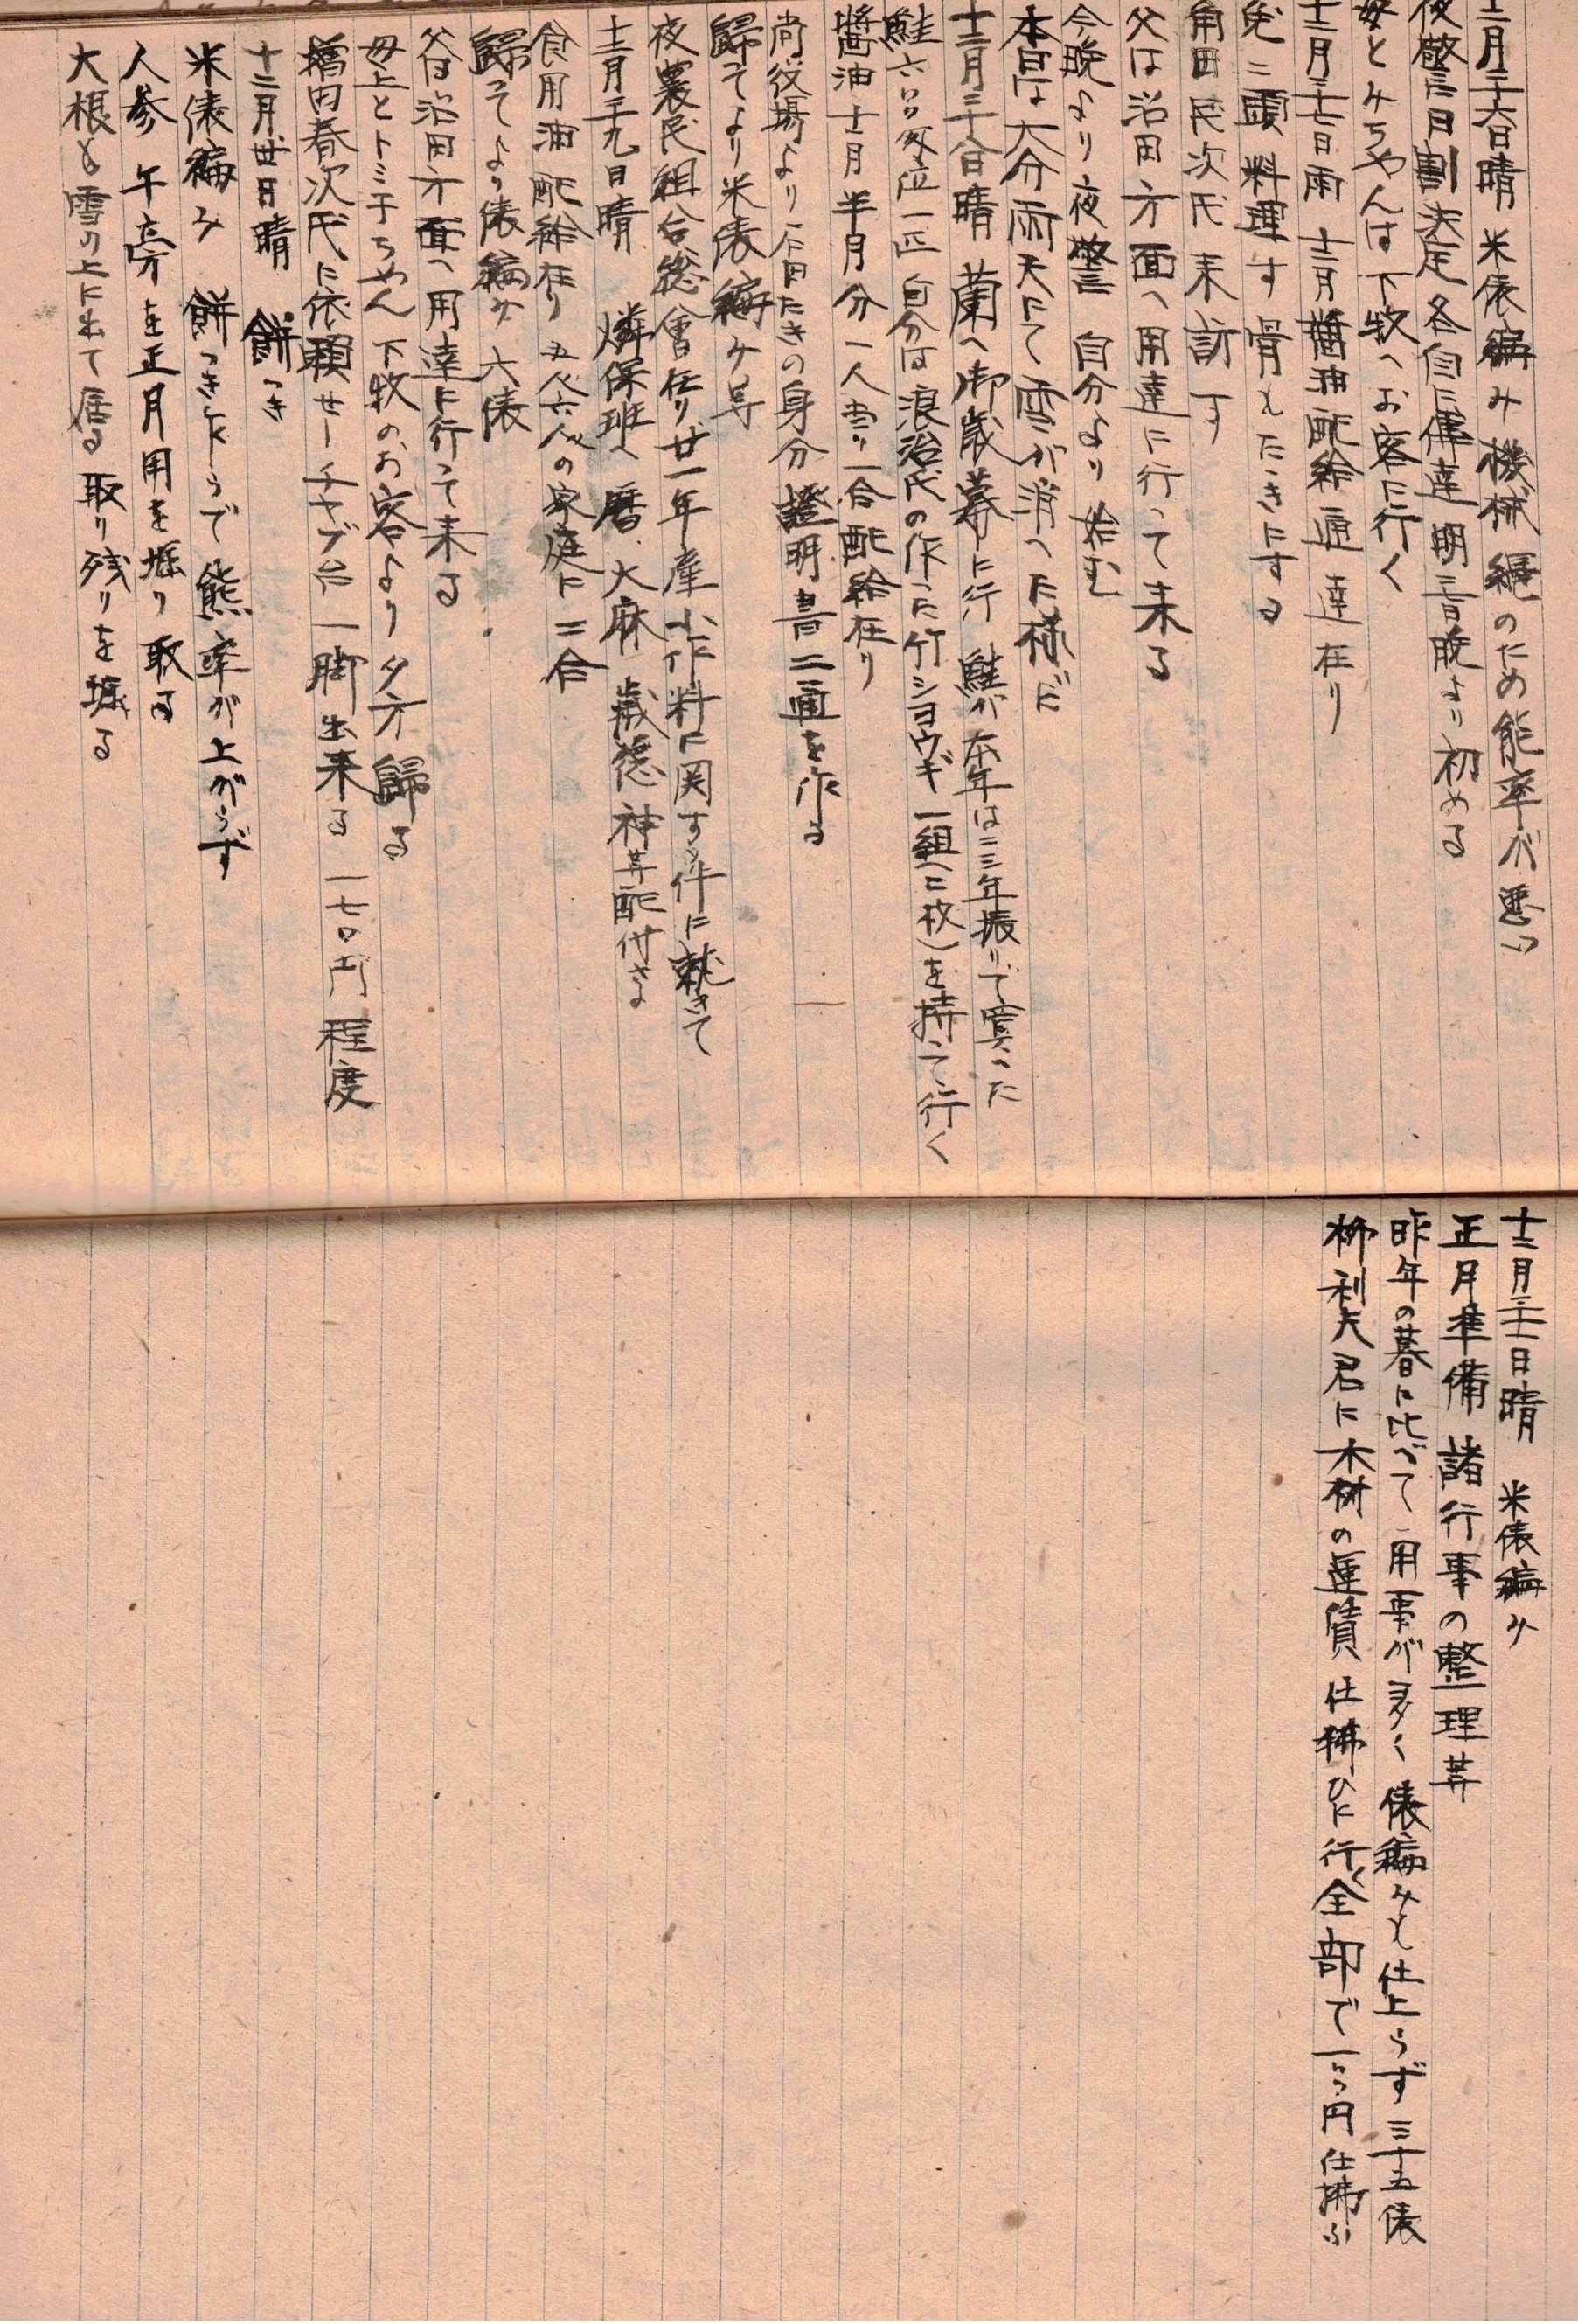 十二月二十六日晴 米俵編み機械縄のため能率が悪い
夜警日割決定各自に傳達明二十七日晩より初める
母とみちやんは下牧へお客に行く
十二月二十七日雨 十二月醬油配給通達在り
兎二頭料理す骨もたきにする
角田民次氏来訪す
父は沼田方面へ用達に行って来る
今晩より夜警 自分より始む
本日は大分雨天にて雪が消へた様だ
十二月二十八日晴 蘭へ御歳暮に行 鮭が本年は二三年振りで實った
鮭六百匁位一匹 自分は浪治氏の作った竹ショウギ一組(二枚)を持って行く
醬油十二月半月分一人当り一合配給在り
尚役場より石田たきの身分證明書二通を作る
歸てより米俵編ケ号
夜農民組合総會在り廿一年産小作料に関する件に就きて
十二月二十九日晴 燐保班へ暦、大麻 歳德神等配付さる
食用油配給在り 五人六人の家庭に二合
歸ってより俵編み 六俵
父は沼田方面へ用達に行って来る
母上とトミ子ちやん下牧のお客より夕方歸る
増田春次氏に依頼せしチャブ台一脚出来る 一七〇円程度
十二月卅日晴 餅つき
米俵編み 餅つき休うで熊率が上がらず
人参 午旁を正月用を堀り取る
大根も雪の上に出て居る取り残りを堀る
十二月三十一日晴 米俵編み
正月準備諸行事の整理等
昨年の暮に比べて用事が多く俵編みも仕上らず三十五俵
柳利夫君に木材の運賃仕拂ひに行く全部で一〇〇円仕拂ふ